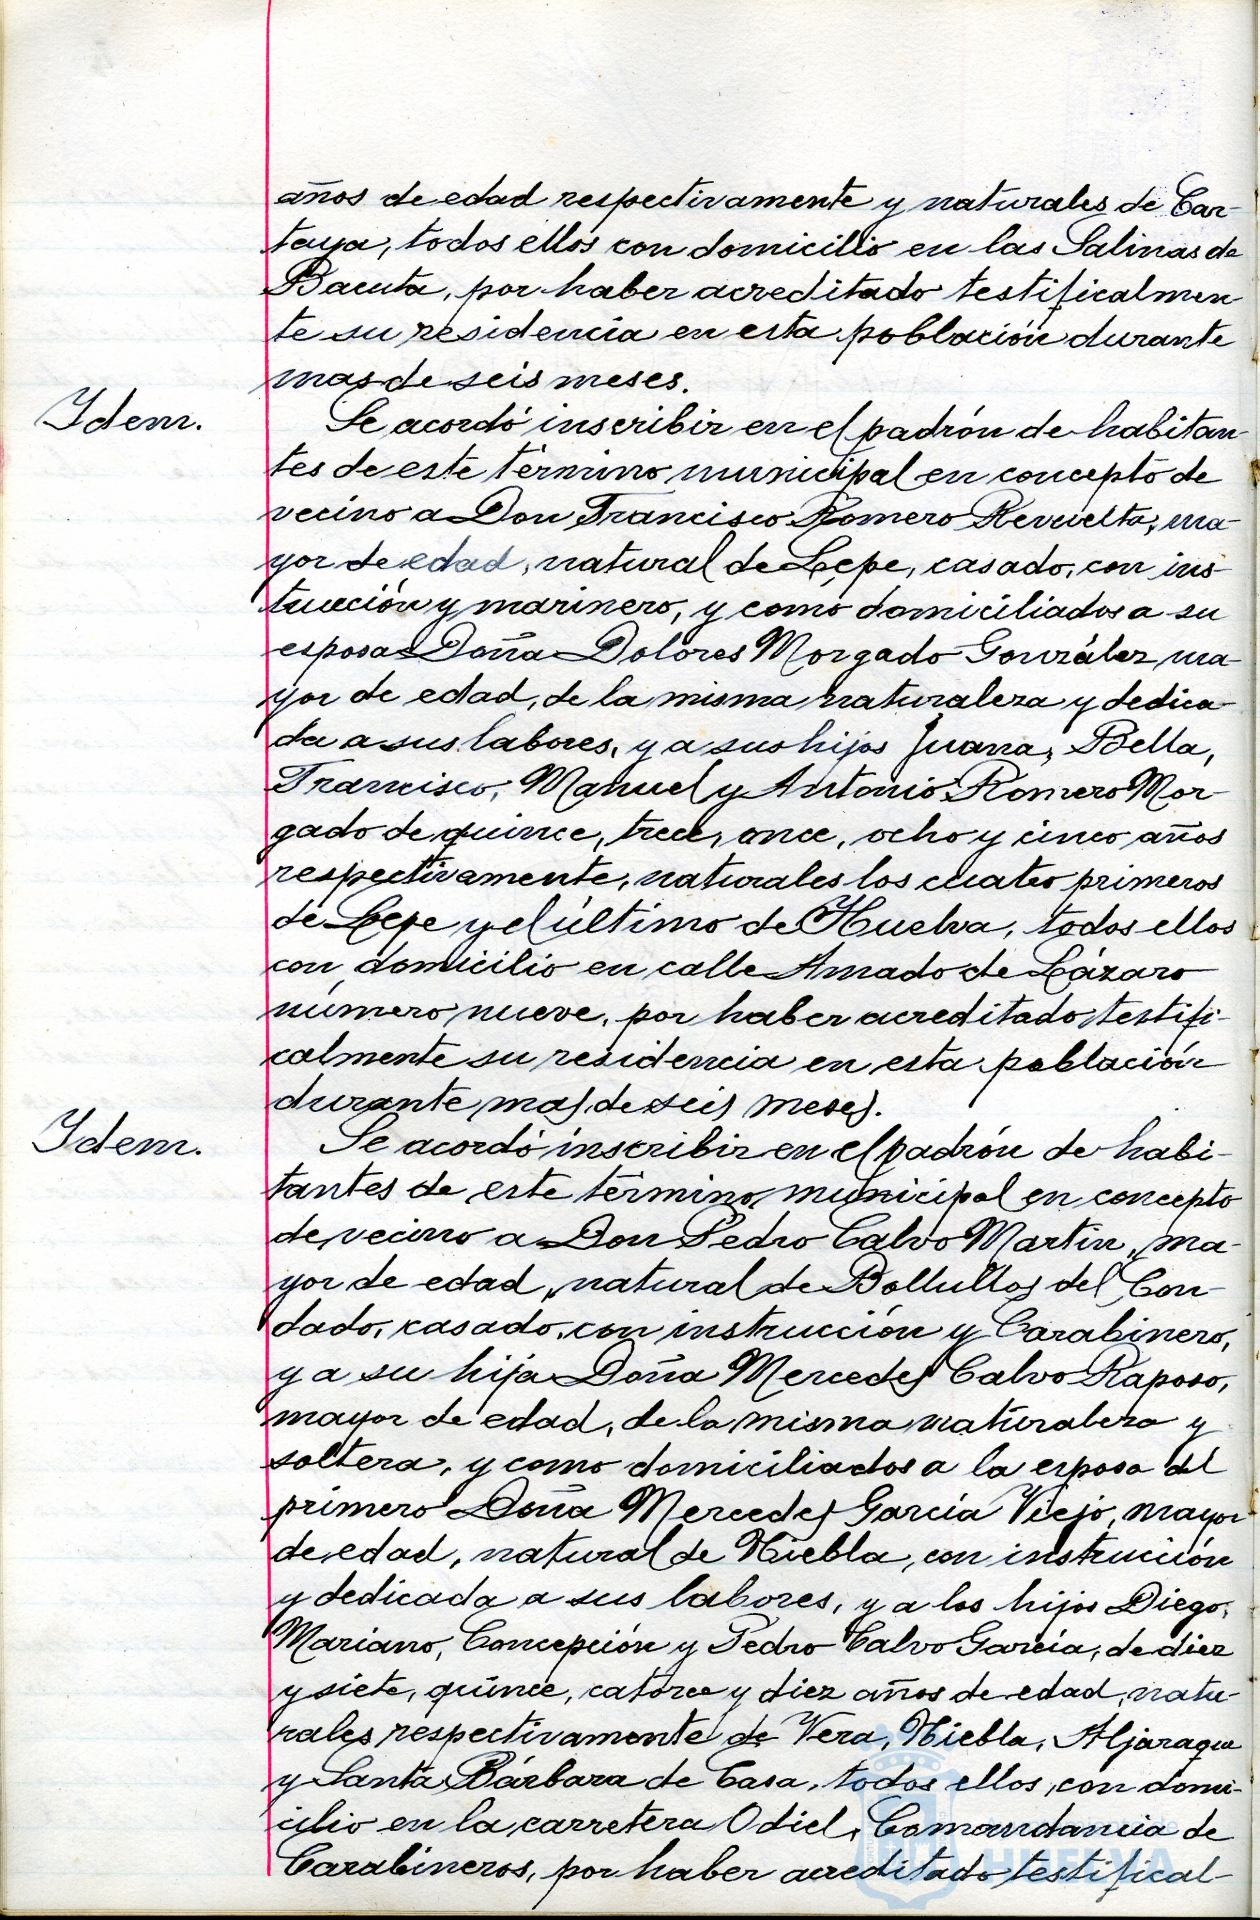 años de edad respectivamente y naturales de Car-
taya, todos ellos con domicilio en las Salinas de
Bacuta, por haber acreditado testificalmen
te su residencia en esta población durante
mas de seis meses.
Idem.
Se acordó inscribir en el padrón de habitan-
tes de este término municipal en concepto de
vecino a Don Francisco Romero Revuelta, ma-
yor de edad, natural de Lepe, casado, con ins-
trucción y marinero, y como domiciliados a su
esposa Doña Dolores Morgado González, ma-
yor de edad, de la misma naturaleza y dedica-
da a sus labores, y a sus hijos Juana, Bella,
Francisco, Manuel y Antonio Romero Mor-
gado de quince, trece, once, ocho y cinco años
respectivamente, naturales los cuatro primeros
de Lepe y el último de Huelva, todos ellos
con domicilio en calle Amado de Lázaro
número nueve, por haber acreditado testifi-
calmente su residencia en esta población
durante mas de seis meses.
Idem.
Se acordó inscribir en el padrón de habi-
tantes de este término municipal en concepto
de vecino a Don Pedro Calvo Martin, ma-
yor de edad, natural de Bollullos del Con-
dado, casado, con instrucción y Carabinero,
y a su hija Doña Mercedes Calvo Raposo,
mayor de edad, de la misma naturaleza y
soltera, y como domiciliados a la esposa del
primero Doña Mercedes García Viejo, mayor
de edad, natural de Niebla, con instrucción
y dedicada a sus labores, y a los hijos Diego,
Mariano, Concepción y Pedro Calvo García, de diez
y siete, quince, catorce y diez años de edad, natu-
rales respectivamente de Vera, Niebla, Aljaraque
y Santa Bárbara de Casa, todos ellos con domi-
cilio en la carretera Odiel, Comandancia de
Carabineros, por haber acreditado testifical-
HUELVA